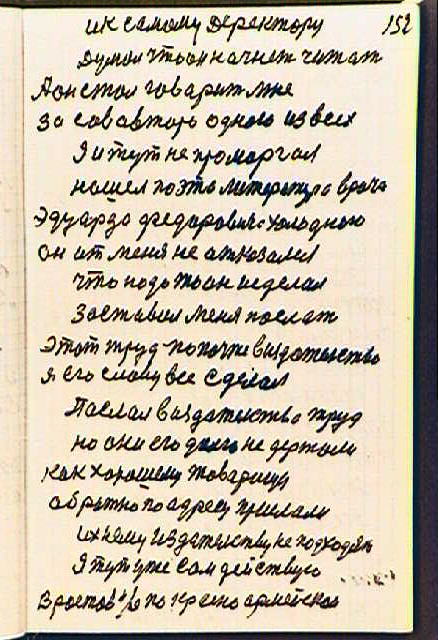 152
ик самому деректору
думал чтоон начнет читат
Аон стал говарит мне
За сов авторь одного из всех
Я и тут не проморгал
нашел поэта литература врача
Эдуарда федаровича холодною
он от меня не атказался
что нада таон исделал
Заставил меня послат
Этот труд попочте виздателство
я его слову все сделал
Паслал виздателство труд
но они его долго не держали
как харошему товарищу
абратно по адресу прислали
Ихнему издателству не подходят
Я тут уже сам действую
В ростов н/д по красно армейской